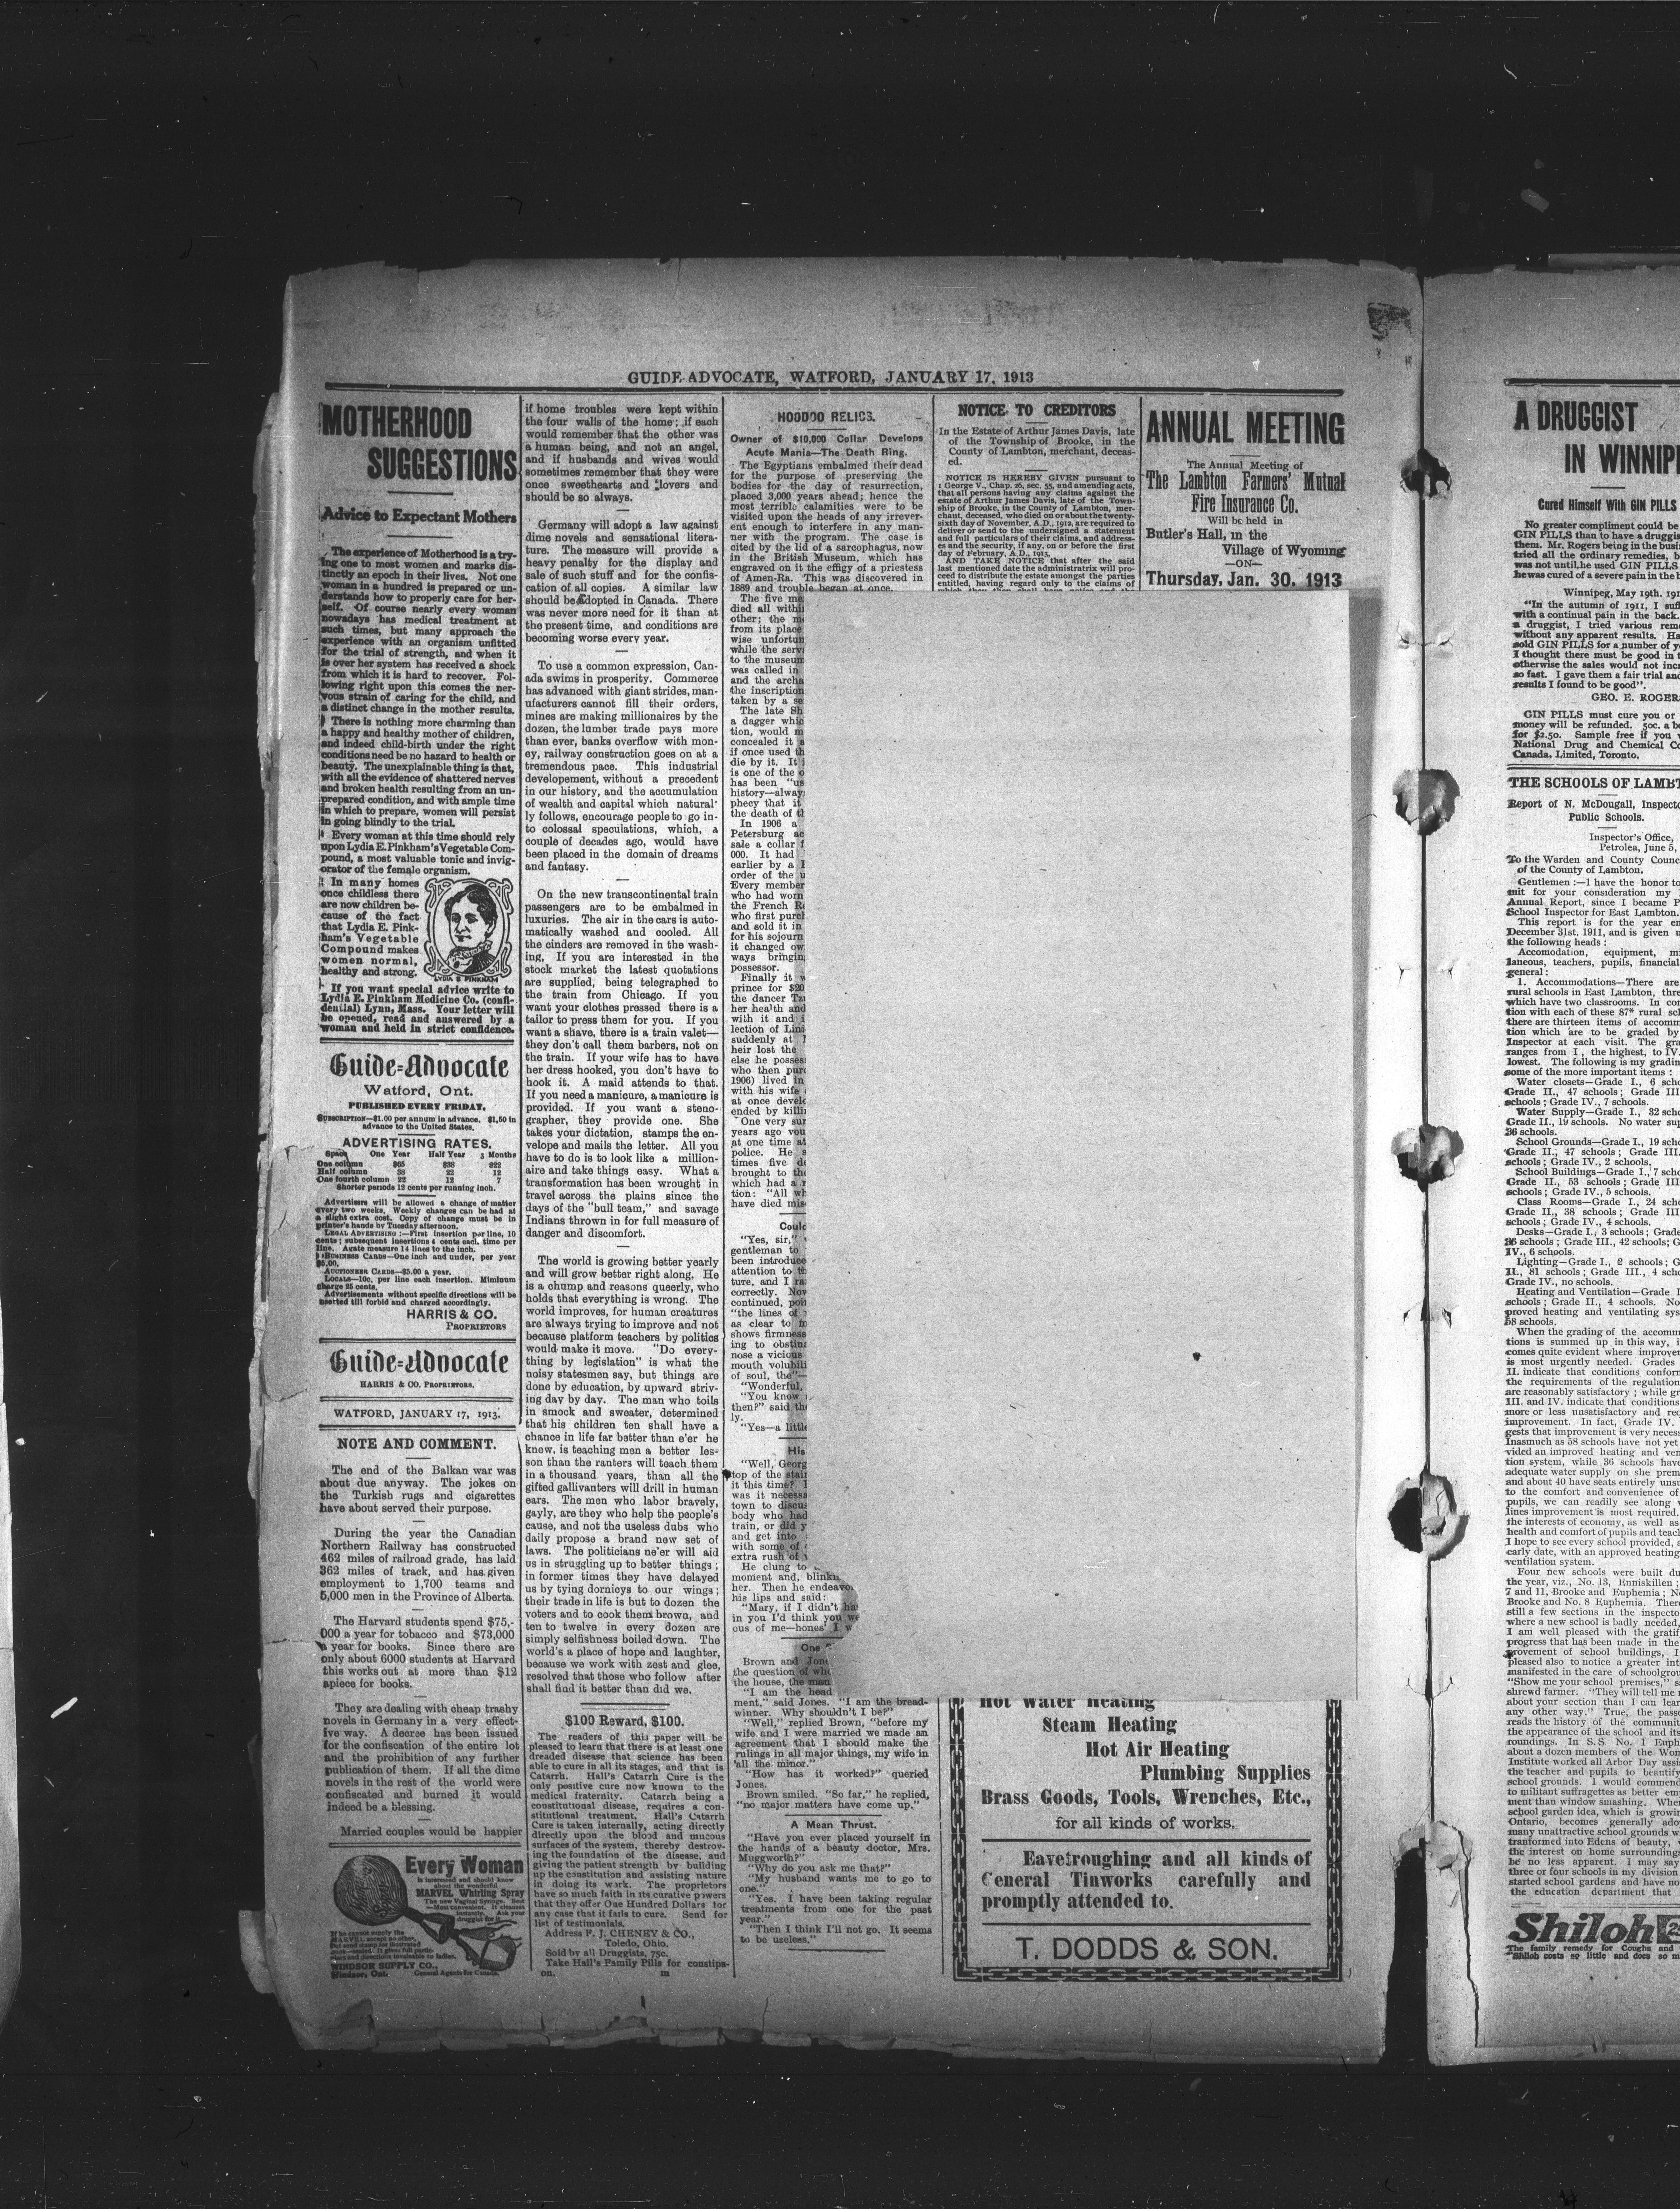 GUIDE-ADVOCATE, WATFORD, JANUARY 17, 1913
MOTHERHOOD
SUGGESTIONS
Advice to Expectant Mothers
The experience of Motherhood is a try-
ing one to most women and marks dis-
tinctly an epoch in their lives. Not one
woman in a hundred is prepared or un-
derstands how to properly care for her-
self. Of course nearly every woman
nowadays has medical treatment at
such times, but many approach the
experience with an organism unfitted
for the trial of strength, and when it
is over her system has received a shock
from which it is hard to recover. Fol-
lowing right upon this comes the ner-
vous strain of caring for the child, and
a distinct change in the mother results.
There is nothing more charming than
a happy and healthy mother of children,
and indeed child-birth under the right
conditions need be no hazard to health or
beauty. The unexplainable thing is that,
with all the evidence of shattered nerves
and broken health resulting from an un-
prepared condition, and with ample time
in which to prepare, women will persist
in going blindly to the trial.
Every woman at this time should rely
upon Lydia E. Pinkham's Vegetable Com-
pound, a most valuable tonic and invig-
orator of the female organism.
In many homes
once childless there
are now children be-
cause of the fact
that Lydia E. Pink-
ham's Vegetable
Compound makes
women normal,
healthy and strong.
LYDIA E PINKHAM
If you want special advice write to
Lydia E. Pinkham Medicine Co. (confi-
dential) Lynn, Mass. Your letter will
be opened, read and answered by a
woman and held in strict confidence.
Guide-Advocate
Watford, Ont.
PUBLISHED EVERY FRIDAY.
SUBSCRIPTION—$1.00 per annum in advance. $1.50 in
advance to the United States.
ADVERTISING RATES.
Space One Year Half Year 3 Months
One column $65 $38 $22
Half column 38 22 12
One fourth column 22 12 7
Shorter periods 12 cents per running inch.
Advertisers will be allowed a change of matter
every two weeks. Weekly changes can be had at
a slight extra cost. Copy of change must be in
printer's hands by Tuesday afternoon.
LEGAL ADVERTISING:—First insertion per line, 10
cents; subsequent insertions 4 cents each time per
line. Agate measure 14 lines to the inch.
BUSINESS CARDS—One inch and under, per year
$5.00.
AUCTIONEER CARDS—$5.00 a year.
LOCALS—10c. per line each insertion. Miminum
charge 25 cents.
Advertisements without specific directions will be
inserted till forbid and charged accordingly.
HARRIS & CO.
PROPRIETORS
Guide-Advocate
HARRIS & CO. PROPRIETORS.
WATFORD, JANUARY 17, 1913.
NOTE AND COMMENT.
The end of the Balkan war was
about due anyway. The jokes on
the Turkish rugs and cigarettes
have about served their purpose.
During the year the Canadian
Northern Railway has constructed
462 miles of railroad grade, has laid
362 miles of track, and has given
employment to 1,700 teams and
5,000 men in the Province of Alberta.
The Harvard students spend $75,-
000 a year for tobacco and $73,000
a year for books. Since there are
only about 6000 students at Harvard
this works out at more than $12
apiece for books.
They are dealing with cheap trashy
novels in Germany in a very effect-
ive way. A decree has been issued
for the confiscation of the entire lot
and the prohibition of any further
publication of them. If all the dime
novels in the rest of the world were
confiscated and burned it would
indeed be a blessing.
Married couples would be happier
Every Woman
is interested and should know
about the wonderful
MARVEL Whirling Spray
The new Vaginal Syringe. Best
—Most convenient. It cleanses
instantly. Ask your
druggist for it.
If he cannot supply the
MARVEL, accept no other,
but send stamp for illustrated
book—sealed. It gives full partic-
ulars and directions invaluable to ladies.
WINDSOR SUPPLY CO.,
Windsor, Ont. General Agents for Canada.
if home troubles were kept within
the four walls of the home; if each
would remember that the other was
a human being, and not an angel,
and if husbands and wives would
sometimes remember that they were
once sweethearts and lovers and
should be so always.
Germany will adopt a law against
dime novels and sensational litera-
ture. The measure will provide a
heavy penalty for the display and
sale of such stuff and for the confis-
cation of all copies. A similar law
should be adopted in Canada. There
was never more need for it than at
the present time, and conditions are
becoming worse every year.
To use a common expression, Can-
ada swims in prosperity. Commerce
has advanced with giant strides, man-
ufacturers cannot fill their orders,
mines are making millionaires by the
dozen, the lumber trade pays more
than ever, banks overflow with mon-
ey, railway construction goes on at a
tremendous pace. This industrial
developement, without a precedent
in our history, and the accumulation
of wealth and capital which natural-
ly follows, encourage people to go in-
to colossal speculations, which, a
couple of decades ago, would have
been placed in the domain of dreams
and fantasy.
On the new transcontinental train
passengers are to be embalmed in
luxuries. The air in the cars is auto-
matically washed and cooled. All
the cinders are removed in the wash-
ing, If you are interested in the
stock market the latest quotations
are supplied, being telegraphed to
the train from Chicago. If you
want your clothes pressed there is a
tailor to press them for you. If you
want a shave, there is a train valet—
they don't call them barbers, not on
the train. If your wife has to have
her dress hooked, you don't have to
hook it. A maid attends to that.
If you need a manicure, a manicure is
provided. If you want a steno-
grapher, they provide one. She
takes your dictation, stamps the en-
velope and mails the letter. All you
have to do is to look like a million-
aire and take things easy. What a
transformation has been wrought in
travel across the plains since the
days of the "bull team," and savage
Indians thrown in for full measure of
danger and discomfort.
The world is growing better yearly
and will grow better right along. He
is a chump and reasons queerly, who
holds that everything is wrong. The
world improves, for human creatures
are always trying to improve and not
because platform teachers by politics
would make it move. "Do every-
thing by legislation" is what the
noisy statesmen say, but things are
done by education, by upward striv-
ing day by day. The man who toils
in smock and sweater, determined
that his children ten shall have a
chance in life far better than e'er he
knew, is teaching men a better les-
son than the ranters will teach them
in a thousand years, than all the
gifted gallivanters will drill in human
ears. The men who labor bravely,
gayly, are they who help the people's
cause, and not the useless dubs who
daily propose a brand new set of
laws. The politicians ne'er will aid
us in struggling up to better things;
in former times they have delayed
us by tying dornicys to our wings;
their trade in life is but to dozen the
voters and to cook them brown, and
ten to twelve in every dozen are
simply selfishness boiled down. The
world's a place of hope and laughter,
because we work with zest and glee,
resolved that those who follow after
shall find it better than did we.
$100 Reward, $100.
The readers of this paper will be
pleased to learn that there is at least one
dreaded disease that science has been
able to cure in all its stages, and that is
Catarrh. Hall's Catarrh Cure is the
only positive cure now known to the
medical fraternity. Catarrh being a
constitutional disease, requires a con-
stitutional treatment. Hall's Catarrh
Cure is taken internally, acting directly
directly upon the blood and mucous
surfaces of the system, thereby destroy-
ing the foundation of the disease, and
giving the patient strength by building
up the constitution and assisting nature
in doing its work. The proprietors
have so much faith in its curative powers
that they offer One Hundred Dollars for
any case that it fails to cure. Send for
list of testimonials.
Address F. J. CHENEY & CO.,
Toledo, Ohio.
Sold by all Druggists, 75c.
Take Hall's Family Pills for constipa-
on. m
HOODOO RELICS.
Owner of $10,000 Collar Develops
Acute Mania—The Death Ring.
The Egyptians embalmed their dead
for the purpose of preserving the
bodies for the day of resurrection,
placed 3,000 years ahead; hence the
most terrible calamities were to be
visited upon the heads of any irrever-
ent enough to interfere in any man-
ner with the program. The case is
cited by the lid of a sarcophagus, now
in the British Museum, which has
engraved on it the effigy of a priestess
of Amen-Ra. This was discovered in
1889 and trouble began at once.
The five me
died all withi
other; the m
from its place
wise unfortun
while the serv
to the museum
was called in
and the archa
the inscription
taken by a se
The late Sh
a dagger whic
tion, would m
concealed it a
if once used th
die by it. It i
is one of the o
has been "us
history—alway
phecy that it
the death of th
In 1906 a
Petersburg ac
sale a collar f
000. It had
earlier by a
order of the u
Every member
who had worn
the French Re
who first purch
and sold it in
for his sojourn
it changed ow
ways bringing
possessor.
Finally it w
prince for $20
the dancer Tzu
her health and
with it and i
lection of Lins
suddenly at
heir lost the
else he posses
who then purc
1906) lived in
with his wife
at once develo
ended by killi
One very sur
years ago vou
at one time at
police. He s
times five de
brought to the
which had a r
tion: "All wh
have died mis
Could
"Yes, sir,"
gentleman to
been introduce
attention to th
ture, and I ra
correctly. Now
continued, poin
"the lines of
as clear to m
shows firmness
ing to obstina
nose a vicious
mouth volubili
of soul, the"—
"Wonderful,
"You know
then?" said the
ly.
"Yes—a little
His
"Well, Georg
top of the stair
it this time? I
was it necessa
town to discus
body who had
train, or did y
and get into
with some of
extra rush of
He clung to
moment and, blinki
her. Then he endeavo
his lips and said:
"Mary, if I didn't ha
in you I'd think you we
ous of me—hones' I w
One
Brown and Jon
the question of who
the house, the man
"I am the head
ment," said Jones. "I am the bread-
winner. Why shouldn't I be?"
"Well," replied Brown, "before my
wife and I were married we made an
agreement that I should make the
rulings in all major things, my wife in
all the minor."
"How has it worked?" queried
Jones.
Brown smiled. "So far," he replied,
"no major matters have come up."
A Mean Thrust.
"Have you ever placed yourself in
the hands of a beauty doctor, Mrs.
Muggworth?"
"Why do you ask me that?"
"My husband wants me to go to
one."
"Yes. I have been taking regular
treatments from one for the past
year."
"Then I think I'll not go. It seems
to be useless."
NOTICE TO CREDITORS
In the Estate of Arthur James Davis, late
of the Township of Brooke, in the
County of Lambton, merchant, deceas-
ed.
NOTICE IS HEREBY GIVEN pursuant to
1 George V., Chap. 26, sec. 55, and amending acts,
that all persons having any claims against the
estate of Arthur James Davis, late of the Town-
ship of Brooke, in the County of Lambton, mer-
chant, deceased, who died on or about the twenty-
sixth day of November, A.D., 1912, are required to
deliver or send to the undersigned a statement
and full particulars of their claims, and address-
es and the security, if any, on or before the first
day of February, A.D., 1913,
AND TAKE NOTICE that after the said
last mentioned date the administratrix will pro-
ceed to distribute the estate amongst the parties
entitled, having regard only to the claims of
ANNUAL MEETING
The Annual Meeting of
The Lambton Farmers' Mutual
Fire Insurance Co.
Will be held in
Butler's Hall, in the
Village of Wyoming
—ON—
Thursday, Jan. 30, 1913
Hot Water Heating
Steam Heating
Hot Air Heating
Plumbing Supplies
Brass Goods, Tools, Wrenches, Etc.,
for all kinds of works.
Eavetroughing and all kinds of
General Tinworks carefully and
promptly attended to.
T. DODDS & SON.
A DRUGGIST
IN WINNIP
Cured Himself With GIN PILLS
No greater compliment could be
GIN PILLS than to have a druggis
them. Mr. Rogers being in the busi
tried all the ordinary remedies, b
was not until he used GIN PILLS
he was cured of a severe pain in the b
Winnipeg, May 19th. 191
"In the autumn of 1911, I suff
with a continual pain in the back.
a druggist, I tried various reme
without any apparent results. Ha
sold GIN PILLS for a number of ye
I thought there must be good in t
otherwise the sales would not incr
so fast. I gave them a fair trial and
results I found to be good".
GEO. E. ROGERS
GIN PILLS must cure you or
money will be refunded. 50c. a bo
for $2.50. Sample free if you w
National Drug and Chemical Co
Canada, Limited, Toronto.
THE SCHOOLS OF LAMBT
Report of N. McDougall, Inspecto
Public Schools.
Inspector's Office,
Petrolea, June 5,
To the Warden and County Counc
of the County of Lambton.
Gentlemen:—I have the honor to
mit for your consideration my
Annual Report, since I became P
School Inspector for East Lambton.
This report is for the year en
December 31st, 1911, and is given u
the following heads:
Accomodation, equipment, mi
laneous, teachers, pupils, financial
general:
1. Accommodations—There are
rural schools in East Lambton, thre
which have two classrooms. In con
tion with each of these 87* rural sch
there are thirteen items of accomm
tion which are to be graded by
Inspector at each visit. The gra
ranges from I, the highest, to IV.
lowest. The following is my grading
some of the more important items:
Water closets—Grade I., 6 scho
Grade II., 47 schools; Grade III
schools; Grade IV., 7 schools.
Water Supply—Grade I., 32 scho
Grade II., 19 schools. No water sup
36 schools.
School Grounds—Grade I., 19 scho
Grade II., 47 schools; Grade III.
schools; Grade IV., 2 schools.
School Buildings—Grade I., 7 scho
Grade II., 53 schools; Grade III
schools; Grade IV., 5 schools.
Class Rooms—Grade I., 24 scho
Grade II., 38 schools; Grade III
schools; Grade IV., 4 schools.
Desks—Grade I., 3 schools; Grade
26 schools; Grade III., 42 schools; G
IV., 6 schools.
Lighting—Grade I., 2 schools; G
II., 81 schools; Grade III., 4 scho
Grade IV., no schools.
Heating and Ventilation—Grade I
schools; Grade II., 4 schools. No
proved heating and ventilating sys
58 schools.
When the grading of the accomm
tions is summed up in this way, i
comes quite evident where improver
is most urgently needed. Grades
II. indicate that conditions conform
the requirements of the regulation
are reasonably satisfactory; while gr
III. and IV. indicate that conditions
more or less unsatisfactory and req
improvement. In fact, Grade IV.
gests that improvement is very necess
Inasmuch as 58 schools have not yet
vided an improved heating and ven
tion system, while 36 schools have
adequate water supply on she prem
and about 40 have seats entirely unsu
to the comfort and convenience of
pupils, we can readily see along
lines improvement is most required.
the interests of economy, as well as
health and comfort of pupils and teach
I hope to see every school provided, a
early date, with an approved heating
ventilation system.
Four new schools were built du
the year, viz., No. 13, Enniskillen;
7 and 11, Brooke and Euphemia; No
Brooke and No. 8 Euphemia. There
still a few sections in the inspecto
where a new school is badly needed,
I am well pleased with the gratif
progress that has been made in the
provement of school buildings, I
pleased also to notice a greater int
manifested in the care of schoolgrou
"Show me your school premises," sa
shrewd farmer. "They will tell me m
about your section than I can lear
any other way." True, the passe
reads the history of the communit
the appearance of the school and its
roundings. In S.S No. 1 Euph
about a dozen members of the Wom
Institute worked all Arbor Day assis
the teacher and pupils to beautify
school grounds. I would commend
to militant suffragettes as better em
ment than window smashing. When
school garden idea, which is growin
Ontario, becomes generally ado
many unattractive school grounds w
tranformed into Edens of beauty,
the interest on home surrounding
be no less apparent. I may say
three or four schools in my division
started school gardens and have no
the education department that
Shiloh 25
The family remedy for Coughs and
"Shiloh costs so little and does so m